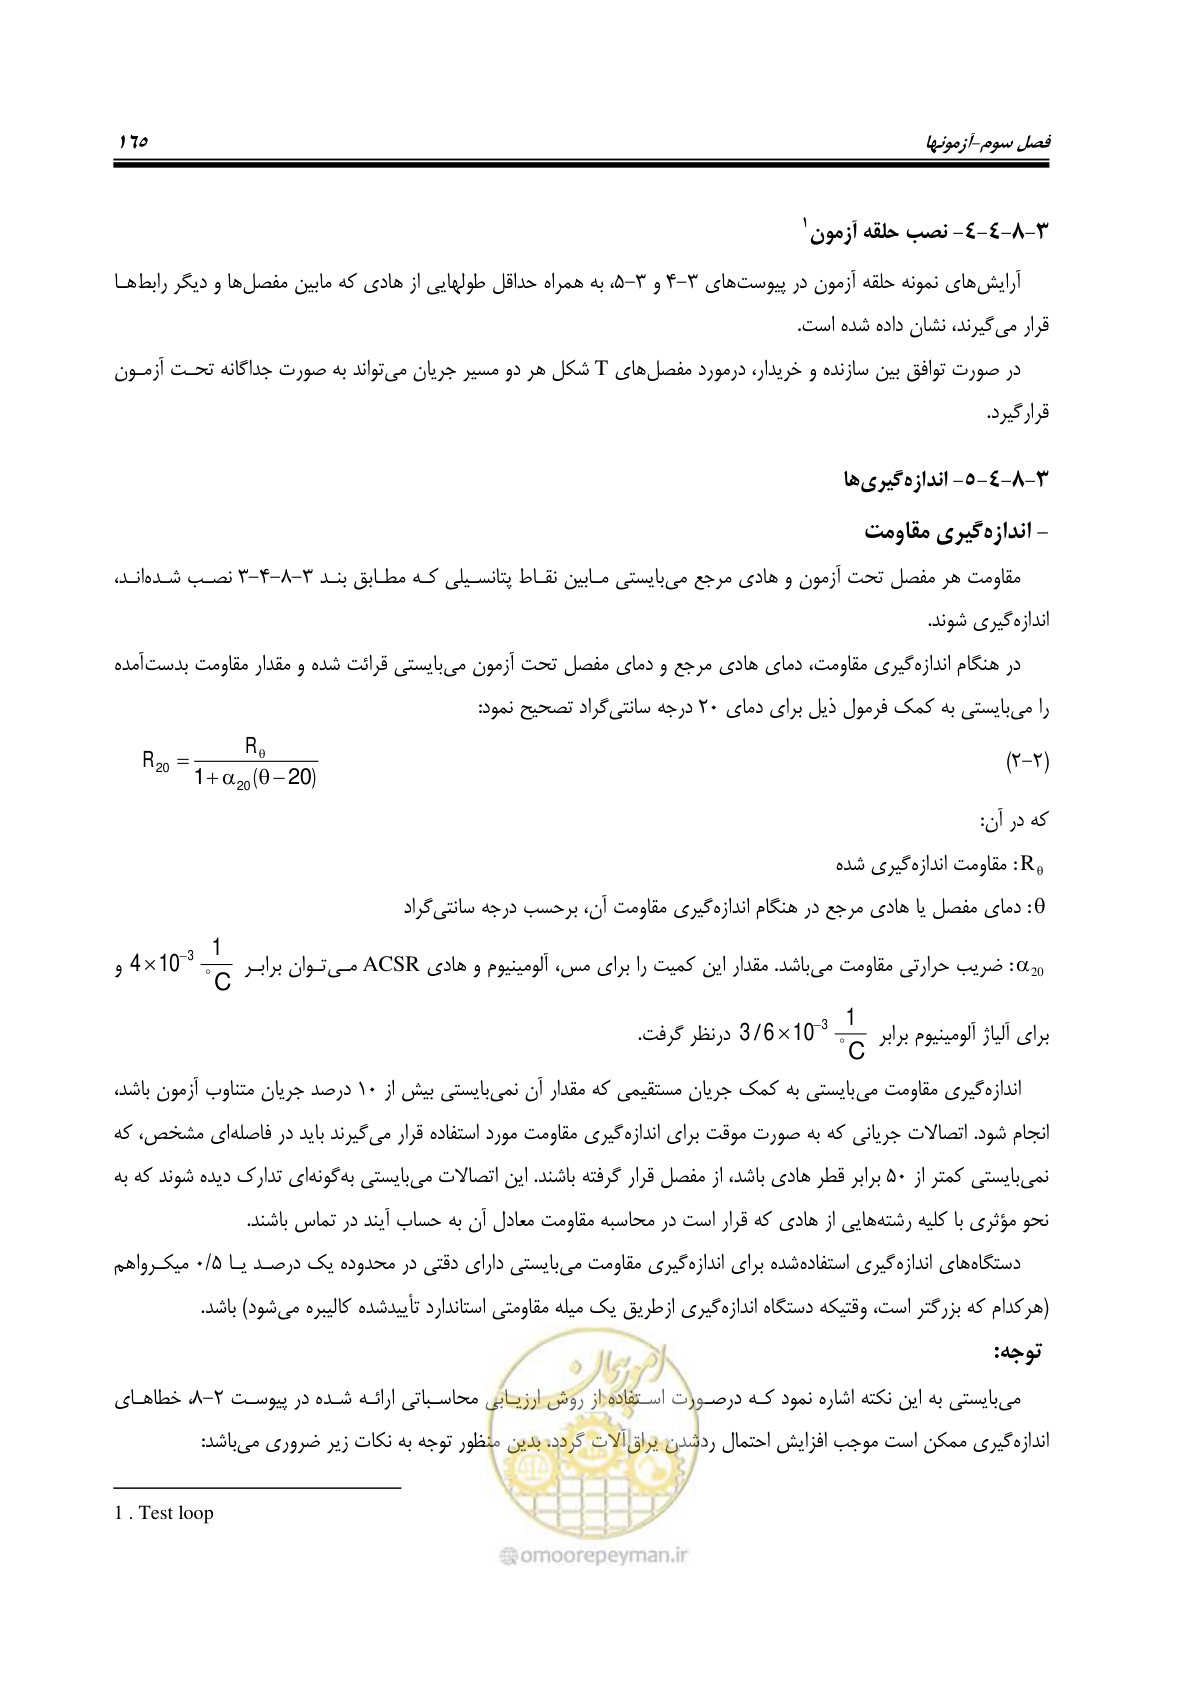 فصل سوم–آزمونها ١٦٥
٣-٨-٤-٤- نصب حلقه آزمون¹
آرایش‌های نمونه حلقه آزمون در پیوست‌های ۳-۴ و ۳-۵، به همراه حداقل طولهایی از هادی که مابین مفصل‌ها و دیگر رابط‌هـا
قرار می‌گیرند، نشان داده شده است.
در صورت توافق بین سازنده و خریدار، درمورد مفصل‌های T شکل هر دو مسیر جریان می‌تواند به صورت جداگانه تحـت آزمـون
قرارگیرد.
٣-٨-٤-٥- اندازه‌گیری‌ها
- اندازه‌گیری مقاومت
مقاومت هر مفصل تحت آزمون و هادی مرجع می‌بایستی مـابین نقـاط پتانسـیلی کـه مطـابق بنـد ۳-۸-۴-۳ نصـب شـده‌انـد،
اندازه‌گیری شوند.
در هنگام اندازه‌گیری مقاومت، دمای هادی مرجع و دمای مفصل تحت آزمون می‌بایستی قرائت شده و مقدار مقاومت بدست‌آمده
را می‌بایستی به کمک فرمول ذیل برای دمای ۲۰ درجه سانتی‌گراد تصحیح نمود:
(۲-۲) R₂₀ = Rθ / (1+α₂₀(θ−20))
که در آن:
Rθ: مقاومت اندازه‌گیری شده
θ: دمای مفصل یا هادی مرجع در هنگام اندازه‌گیری مقاومت آن، برحسب درجه سانتی‌گراد
α₂₀: ضریب حرارتی مقاومت می‌باشد. مقدار این کمیت را برای مس، آلومینیوم و هادی ACSR مـی‌تـوان برابـر 4×10⁻³ 1/°C و
برای آلیاژ آلومینیوم برابر 3/6×10⁻³ 1/°C درنظر گرفت.
اندازه‌گیری مقاومت می‌بایستی به کمک جریان مستقیمی که مقدار آن نمی‌بایستی بیش از ۱۰ درصد جریان متناوب آزمون باشد،
انجام شود. اتصالات جریانی که به صورت موقت برای اندازه‌گیری مقاومت مورد استفاده قرار می‌گیرند باید در فاصله‌ای مشخص، که
نمی‌بایستی کمتر از ۵۰ برابر قطر هادی باشد، از مفصل قرار گرفته باشند. این اتصالات می‌بایستی به‌گونه‌ای تدارک دیده شوند که به
نحو مؤثری با کلیه رشته‌هایی از هادی که قرار است در محاسبه مقاومت معادل آن به حساب آیند در تماس باشند.
دستگاه‌های اندازه‌گیری استفاده‌شده برای اندازه‌گیری مقاومت می‌بایستی دارای دقتی در محدوده یک درصـد یـا ۰/۵ میکـرواهم
(هرکدام که بزرگتر است، وقتیکه دستگاه اندازه‌گیری ازطریق یک میله مقاومتی استاندارد تأییدشده کالیبره می‌شود) باشد.
توجه:
می‌بایستی به این نکته اشاره نمود کـه درصـورت اسـتفاده از روش ارزیـابی محاسـباتی ارائـه شـده در پیوسـت ۲-۸، خطاهـای
اندازه‌گیری ممکن است موجب افزایش احتمال ردشدن یراق‌آلات گردد. بدین منظور توجه به نکات زیر ضروری می‌باشد:
1 . Test loop
امور پیمان
@omoorepeyman.ir